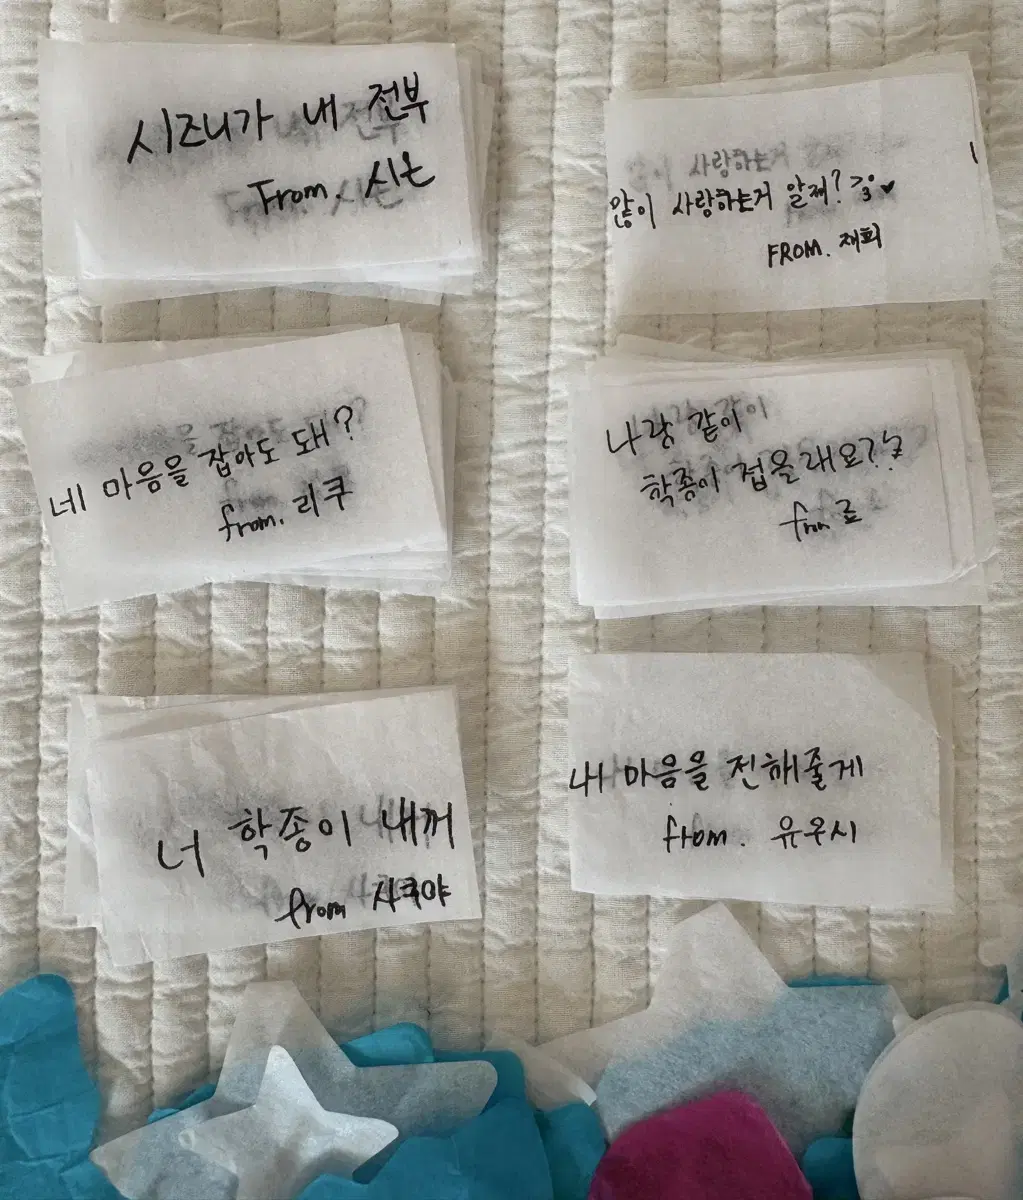 시즈니가 내 전부
From. 시온
많이 사랑하는거 알제?
FROM. 재희
네 마음을 잡아도 돼?
from. 리쿠
나랑 같이
학종이 접을래요??
from 료
너 학종이 내꺼
from 사쿠야
내 마음을 전해줄게
from. 유우시